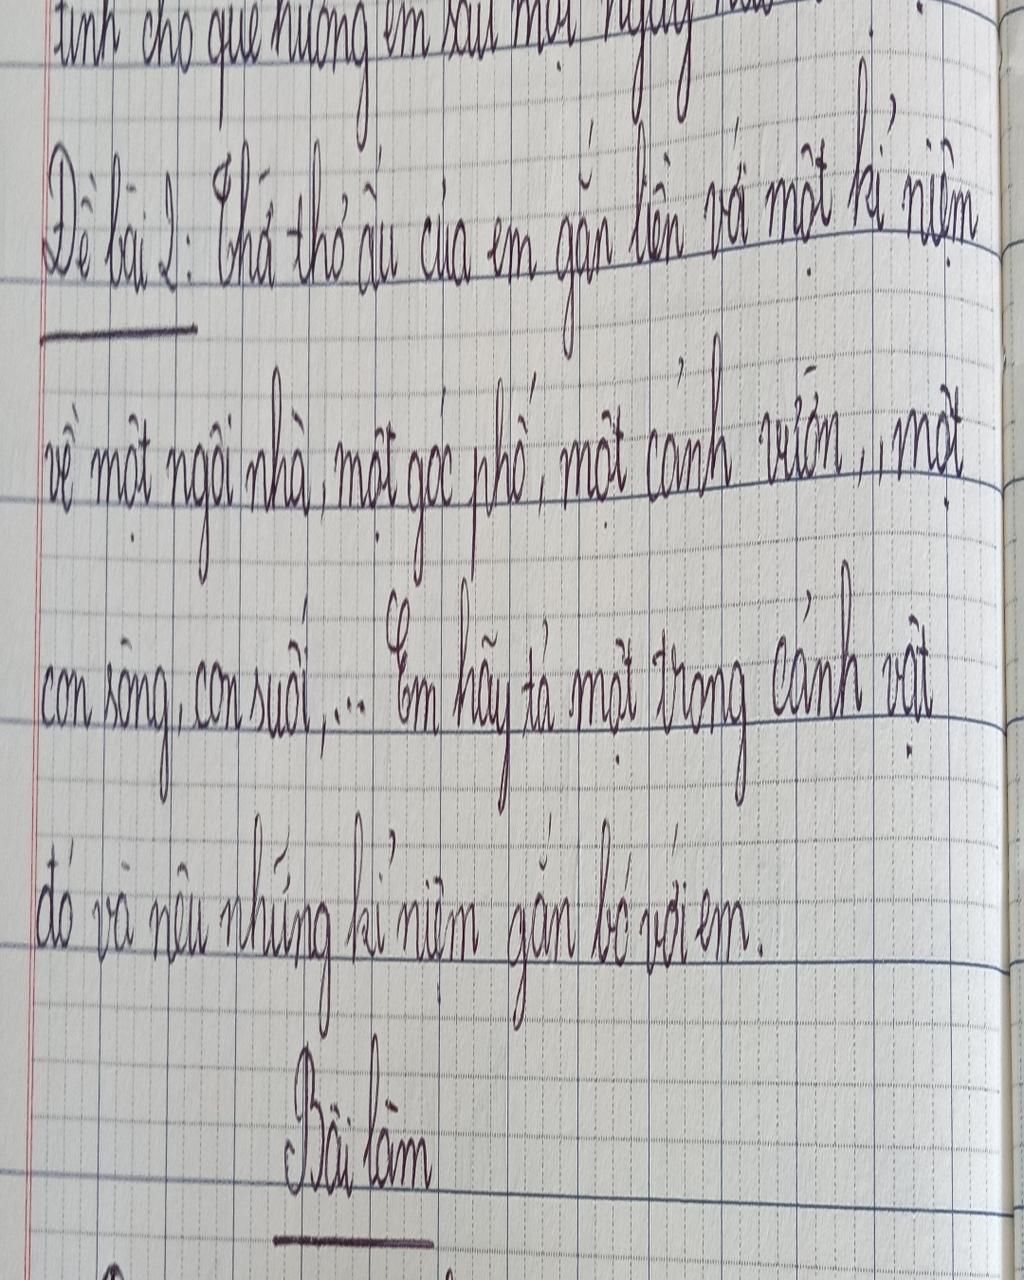 tình cho quê hương em sau một ngày
Đề bài 2: Thơ thơ ấu của em gắn liền với một kỉ niệm
về một ngôi nhà, một góc phố, một cảnh vườn,, một
con sông, con suối,... Em hãy tả một trong cảnh vật
đó và nêu những kỉ niệm gắn bó với em.
Bài làm